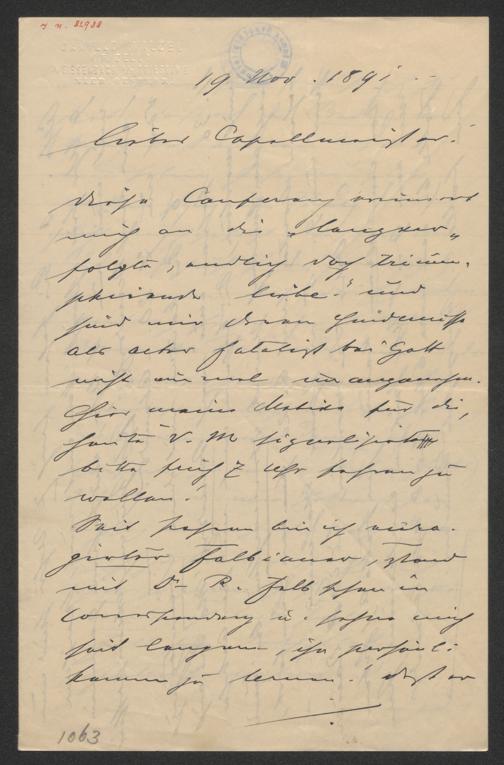 19 Nov. 1891.
Lieber Capellmeister!
Diese Conferenz erinnert
mich an die „lang ver„
folgte, endlich doch trium-
phirende Liebe!" und
sind mir deren Hindernisse
als alter Fatalist bei Gott
nicht einmal unangenehm.
Hier meine Motive für die,
heute V. M
bitte mich 7 Uhr sehen zu
wollen!
Seit Jahren bin ich
Falbianer, stand
mit Dr R. Falb schon in
Correspondenz u. sehne mich
seit langem, ihn persönl:
kennen zu lernen! Dass er
1063